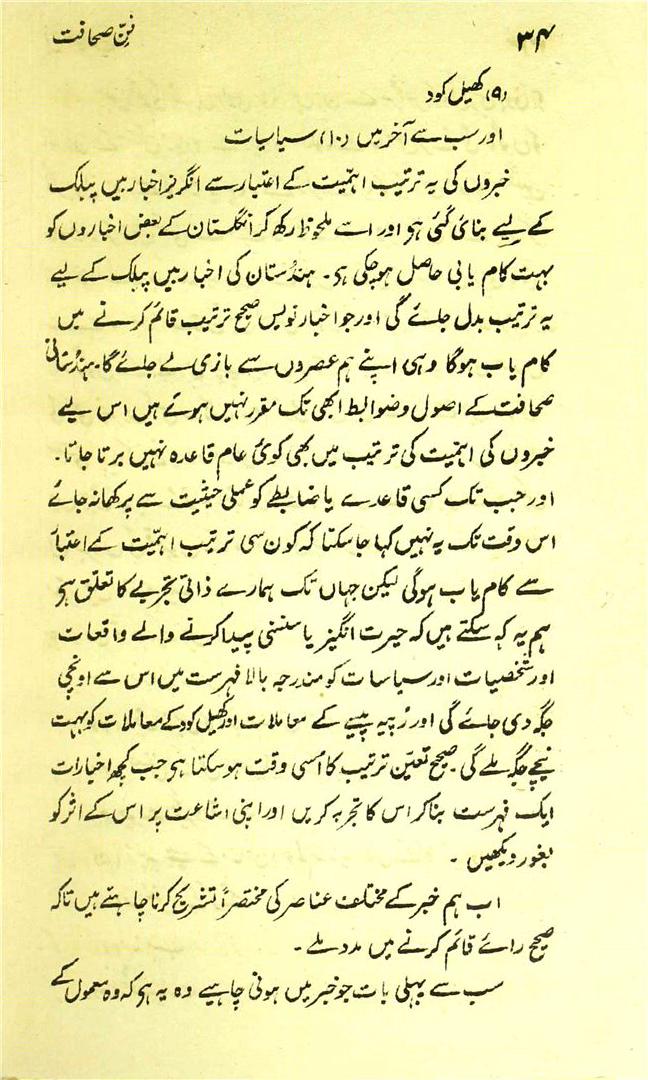 ۳۴ فنِّ صحافت
(۹) کھیل کود
اور سب سے آخر میں (۱۰) سیاسیات
خبروں کی یہ ترتیب اہمیت کے اعتبار سے انگریز اخبار بیں پبلک
کے لیے بنائ گئی ہو اور اسے ملحوظ رکھ کر انگلستان کے بعض اخباروں کو
بہت کام یابی حاصل ہوچکی ہو۔ ہندُستان کی اخبار بیں پبلک کے لیے
یہ ترتیب بدل جائے گی اور جو اخبار نویس صحیح ترتیب قائم کرنے میں
کام یاب ہوگا وہی اپنے ہم عصروں سے بازی لے جائے گا۔ ہندُستانی
صحافت کے اصول و ضوابط ابھی تک مقرر نہیں ہوئے ہیں اس لیے
خبروں کی اہمیت کی ترتیب میں بھی کوئ عام قاعدہ نہیں برتا جاتا۔
اور جب تک کسی قاعدے یا ضابطے کو عملی حیثیت سے پرکھا نہ جائے
اس وقت تک یہ نہیں کہا جاسکتا کہ کون سی ترتیب اہمیت کے اعتبا
سے کام یاب ہوگی لیکن جہاں تک ہمارے ذاتی تجربے کا تعلق ہو
ہم یہ کہ سکتے ہیں کہ حیرت انگیز یا سنسنی پیدا کرنے والے واقعات
اور شخصیات اور سیاسات کو مندرجہ بالا فہرست میں اس سے اونچی
جگہ دی جائے گی اور رُپیہ پیسے کے معاملات اور کھیل کود کے معاملات کو بہت
نیچے جگہ ملے گی۔ صحیح تعیّن ترتیب کا اُسی وقت ہوسکتا ہو جب کچھ اخبارات
ایک فہرست بناکر اس کا تجربہ کریں اور اپنی اشاعت پر اس کے اثر کو
بغور دیکھیں۔
اب ہم خبر کے مختلف عناصر کی مختصراً تشریح کرنا چاہتے ہیں تاکہ
صحیح رائے قائم کرنے میں مدد ملے۔
سب سے پہلی بات جو خبر میں ہونی چاہیے وہ یہ ہو کہ وہ معمول کے